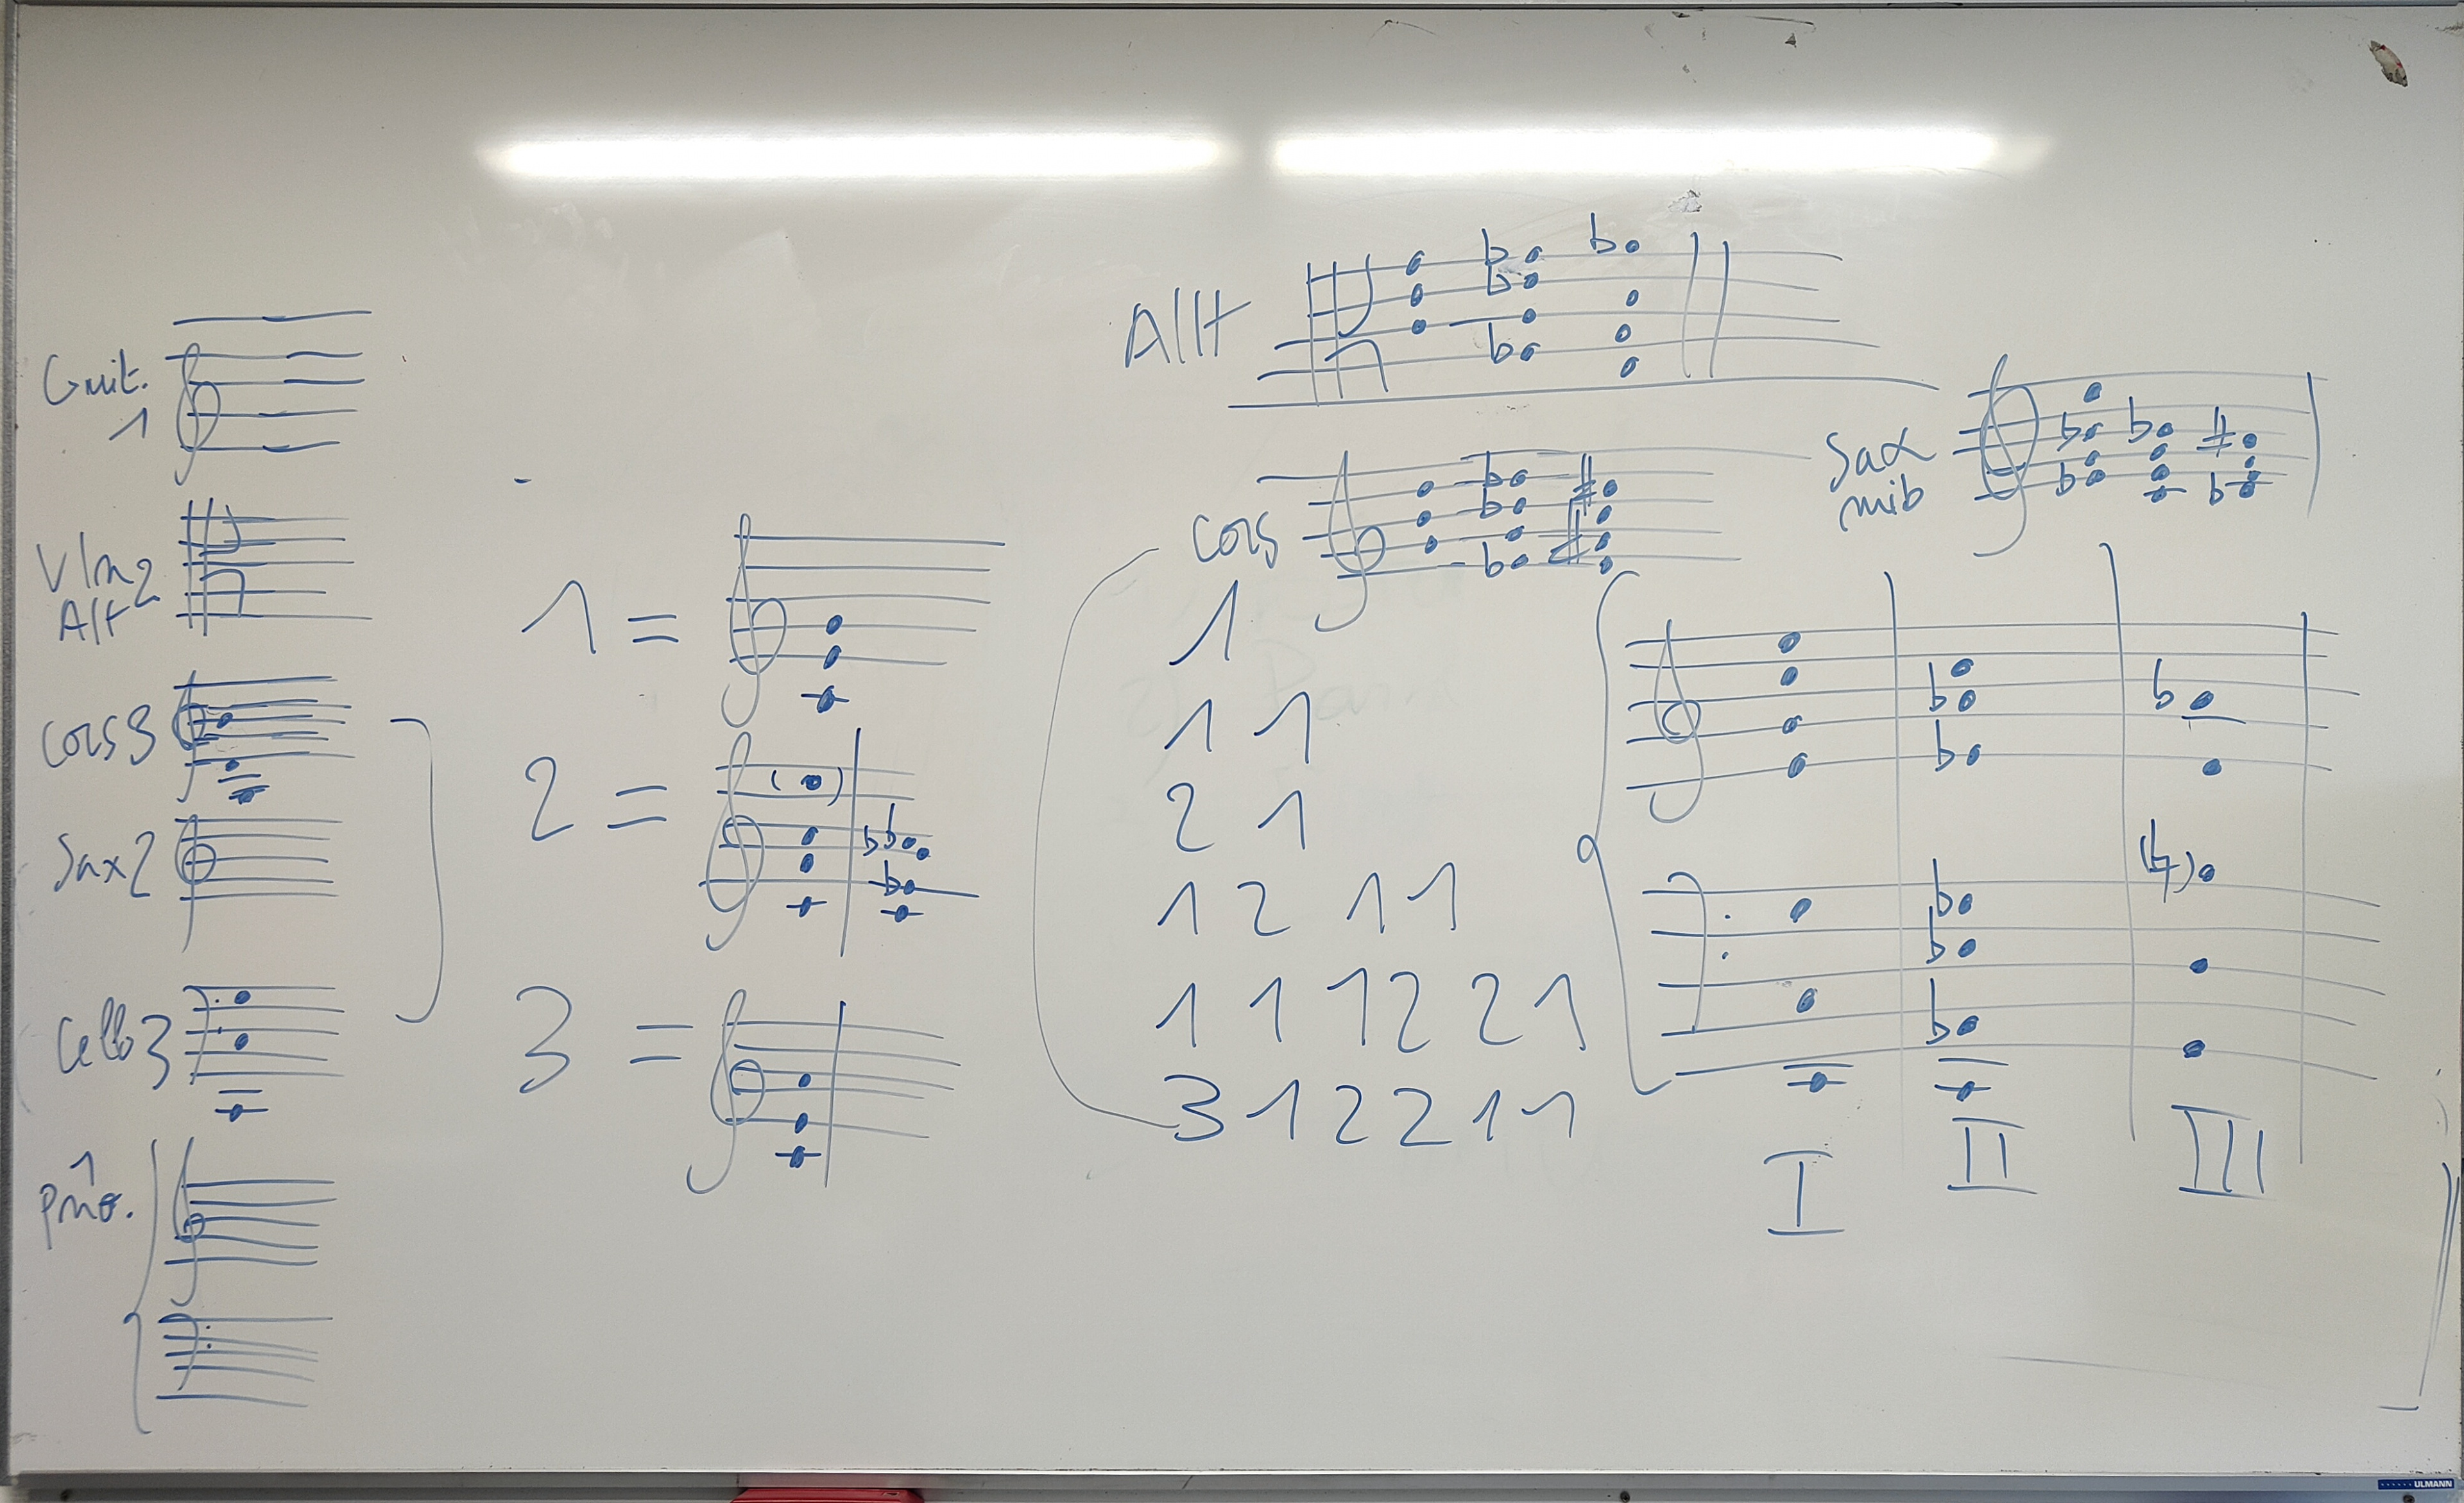 Guit.
1
Vln2
Alt
Cors3
Sax2
Cello3
1
pno.
1 =
2 =
3 =
Alt
Cors
1
1 1
2 1
1 2 1 1
1 1 1 2 2 1
3 1 2 2 1 1
Sax
mib
I
II
III
ULMANN